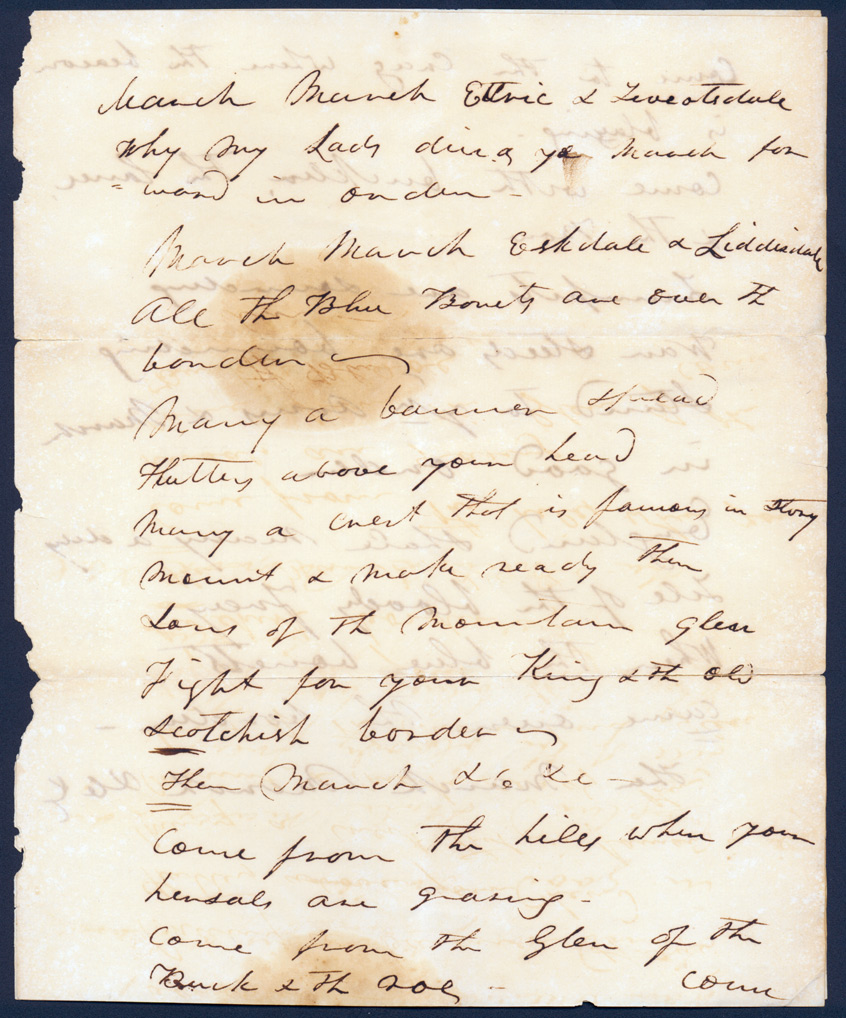 March March Ettric & Tiveotsdale
Why my Lads dina ye March for
= ward in order -
March March Eskdale & Liddisdale
All th Blue Bonets are over th
border
Many a banner spread
Flutters above your head
Many a crest that is famous in story
Mount & make ready then
Sons of th Mountain glen
Fight for your King & th old
Scotchish border
Then March &c &c -
Come from the hills when your
hersals are grasing -
Come from the Glen of the
Buck & th roe - come